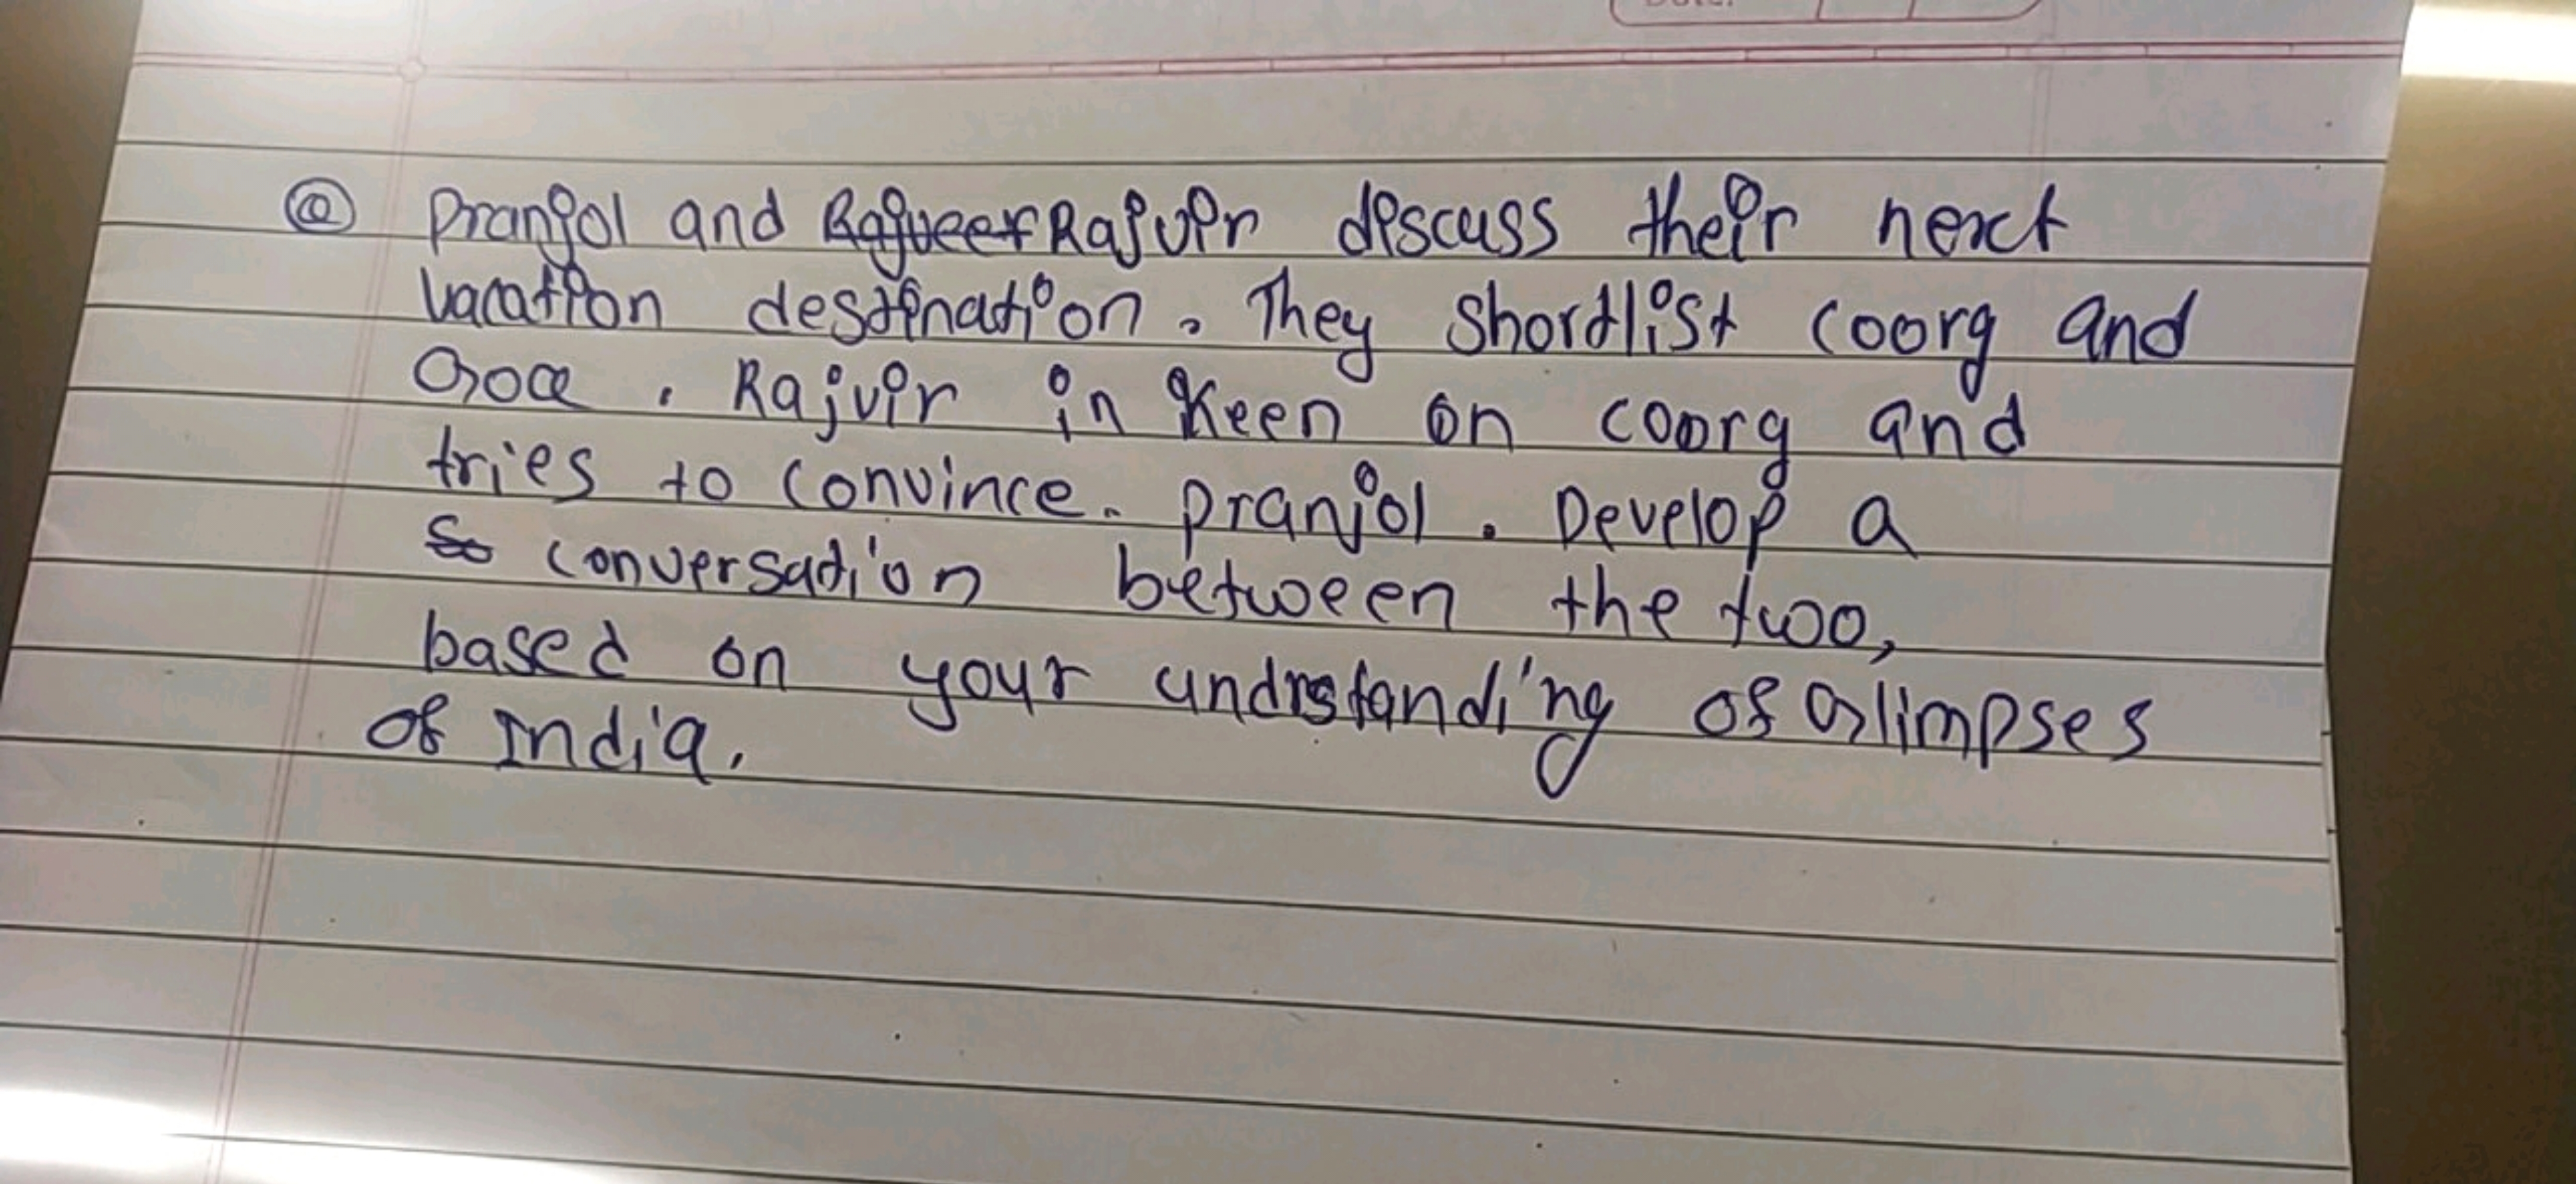 @ Pranjol and Rajveer Rajvir discuss their next
vacation destination. They shordlist coorg and
Goa. Rajvir in keen on coorg and
tries to convince. pranjol. Develop a
So conversation between the two,
based on your undrstanding of Glimpses
of India.